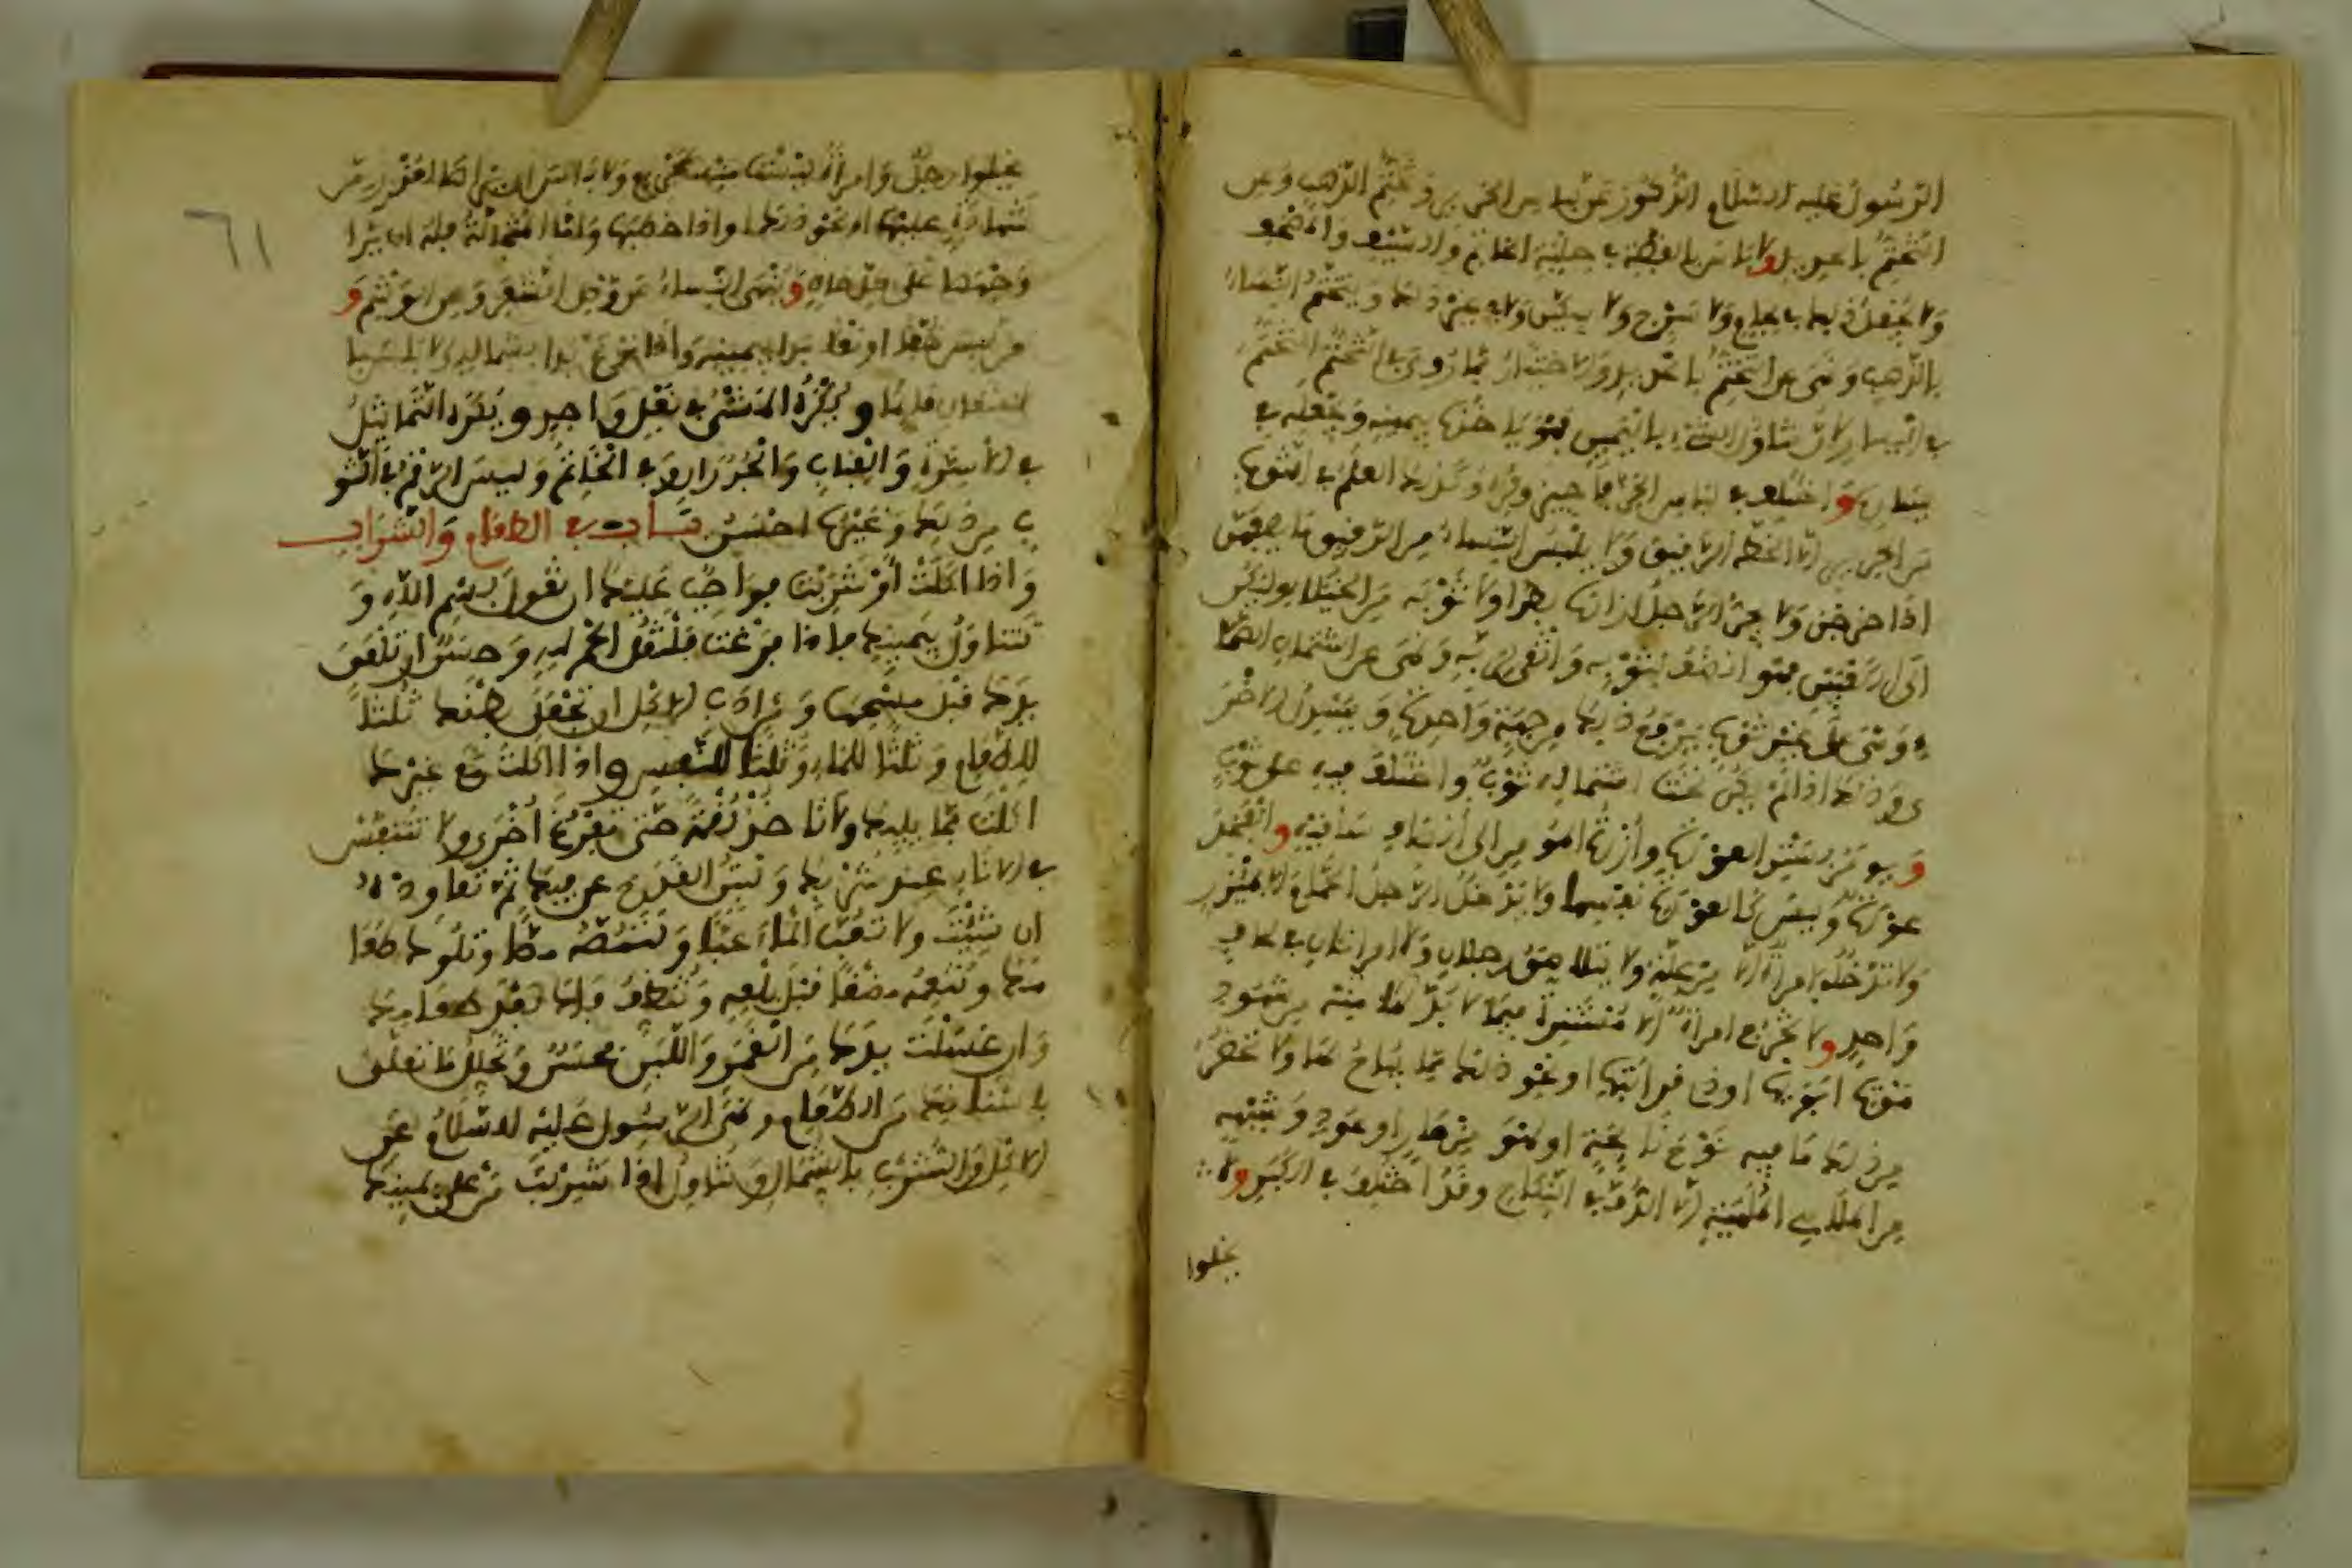 الرسول عليه السلام الذكور عن لباس الحرير وتختم الذهب وعن
التختم بالحديد ولا باس بالفضة في حلية الخاتم والسيف والمصحف
ولا يجعل ذلك في لجام ولا سرج ولا سكين ولا في غير ذلك ويتختم النساء
بالذهب ونهي عن التختم بالحديد والاختيار مما روي في التختم التختم
في اليسار لان تناول الشيء باليمين فهو ياخذه بيمينه ويجعله في
يساره واختلف في لباس الخز فاجيز وكره وكذلك العلم في الثوب
من الحرير الا الخط الرقيق ولا يلبس النساء من الرقيق ما يصفهن
اذا خرجن ولا يجر الرجل ازاره بطرا ولا ثوبه من الخيلاء وليكن
الى الكعبين فهو انظف لثوبه واتقى لربه وينهى عن اشتمال الصما
ء وهي على غير ثوب يرفع ذلك من جهة واحدة ويسدل الاخر
ى وذلك اذا لم يكن تحت اشتمالك ثوب واختلف فيه على ثوب
و يومر بستر العورة وازرة المومن الى انصاف ساقيه والفخذ
عورة وليس كالعورة نفسها ولا يدخل الرجل الحمام الا بمئزر
ولا تدخله المراة الا من علة ولا يتلاصق رجلان ولا امراتان في لحاف
واحد ولا تخرج امراة الا مستترة فيما لا بد لها منه من شهود
موت ابويها او ذي قرابتها او نحو ذلك مما يباح لها ولا تحضر
من ذلك ما فيه نوح نائحة او لهو من مزمار او عود وشبهه
من الملاهي الملهية الا الدف في النكاح وقد اختلف في الكبر ولا
يخلوا
٦١
يخلوا رجل وامراة ليست منه بمحرم ولا باس ان يراها لعذر من
شهادة عليها او نحو ذلك او اذا خطبها واما المتجالة فله ان يرا
وجهها على كل حال وينهى النساء عن وصل الشعر وعن الوشم و
من لبس خفا او نعلا بدا بيمينه واذا نزع بدا بشماله ولا باس با
لانتعال قائما ويكره المشي في نعل واحد وتكره التماثيل
في الاسرة والقباب والجدران وفي الخاتم وليس الرقم في الثو
ب من ذلك وغيره احسن باب في الطعام والشراب
واذا اكلت او شربت فواجب عليك ان تقول بسم الله و
تتناول بيمينك فاذا فرغت فلتقل الحمد لله وحسن ان تلعق
يدك قبل مسحها ومن اداب الاكل ان تجعل بطنك ثلثا
للطعام وثلثا للماء وثلثا للنفس واذا اكلت مع غيرك
اكلت مما يليك ولا تاخذ لقمة حتى تفرغ اخرى ولا تتنفس
في الاناء عند شربك ولتبن القدح عن فيك ثم تعاوده
ان شئت ولا تعب الماء عبا ولتمصه مصا وتلوك طعا
مك وتنعمه مضغا قبل بلعه وتنظف فاك بعد طعامك
وان غسلت يدك من الغمر واللبن فحسن وتخلل ما تعلق
باسنانك من الطعام ونهى الرسول عليه السلام عن
الاكل والشرب بالشمال وتناول اذا شربت من على يمينك